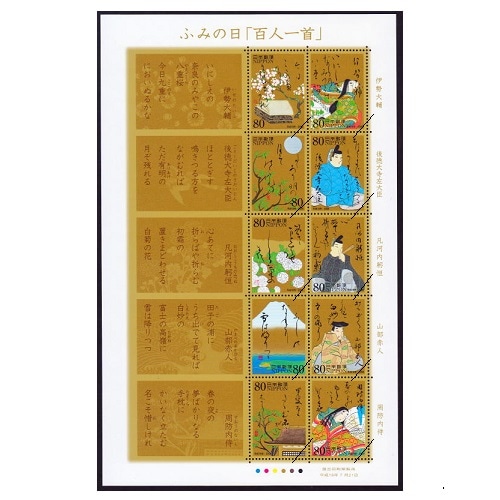 ふみの日「百人一首」
いにしへの
奈良のみやこの
八重桜
今日九重に
にほいぬるかな
伊勢大輔
80
日本郵便
NIPPON
80
日本郵便
NIPPON
ほととぎす
鳴きつる方を
ながむれば
ただ有明の
月ぞ残れる
後徳大寺左大臣
80
日本郵便
NIPPON
80
日本郵便
NIPPON
心あてに
折らばや折らむ
初霜の
置きまどわせる
白菊の花
凡河内躬恒
80
日本郵便
NIPPON
80
日本郵便
NIPPON
田子の浦に
うち出でて見れば
白妙の
富士の高嶺に
雪は降りつつ
山部赤人
80
日本郵便
NIPPON
80
日本郵便
NIPPON
春の夜の
夢ばかりなる
手枕に
かいなく立たむ
名こそ惜しけれ
周防内侍
80
日本郵便
NIPPON
80
日本郵便
NIPPON